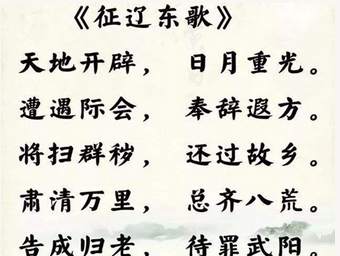 《征辽东歌》
天地开辟， 日月重光。
遭遇际会， 奉辞遐方。
将扫群秽， 还过故乡。
肃清万里， 总齐八荒。
告成归老， 待罪武阳。